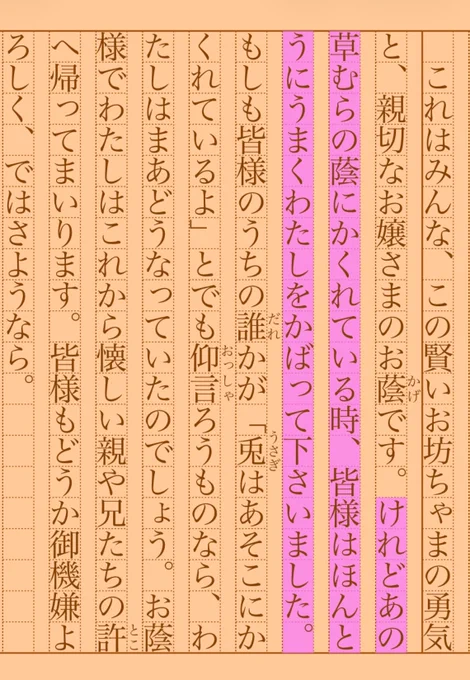 これはみんな、この賢いお坊ちゃまの勇気
と、親切なお嬢さまのお蔭です。けれどあの
草むらの蔭にかくれている時、皆様はほんと
うにうまくわたしをかばって下さいました。
もしも皆様のうちの誰かが「兎はあそこにか
くれているよ」とでも仰言ろうものなら、わ
たしはまあどうなっていたのでしょう。お蔭
様でわたしはこれから懐しい親や兄たちの許
へ帰ってまいります。皆様もどうか御機嫌よ
ろしく、ではさようなら。